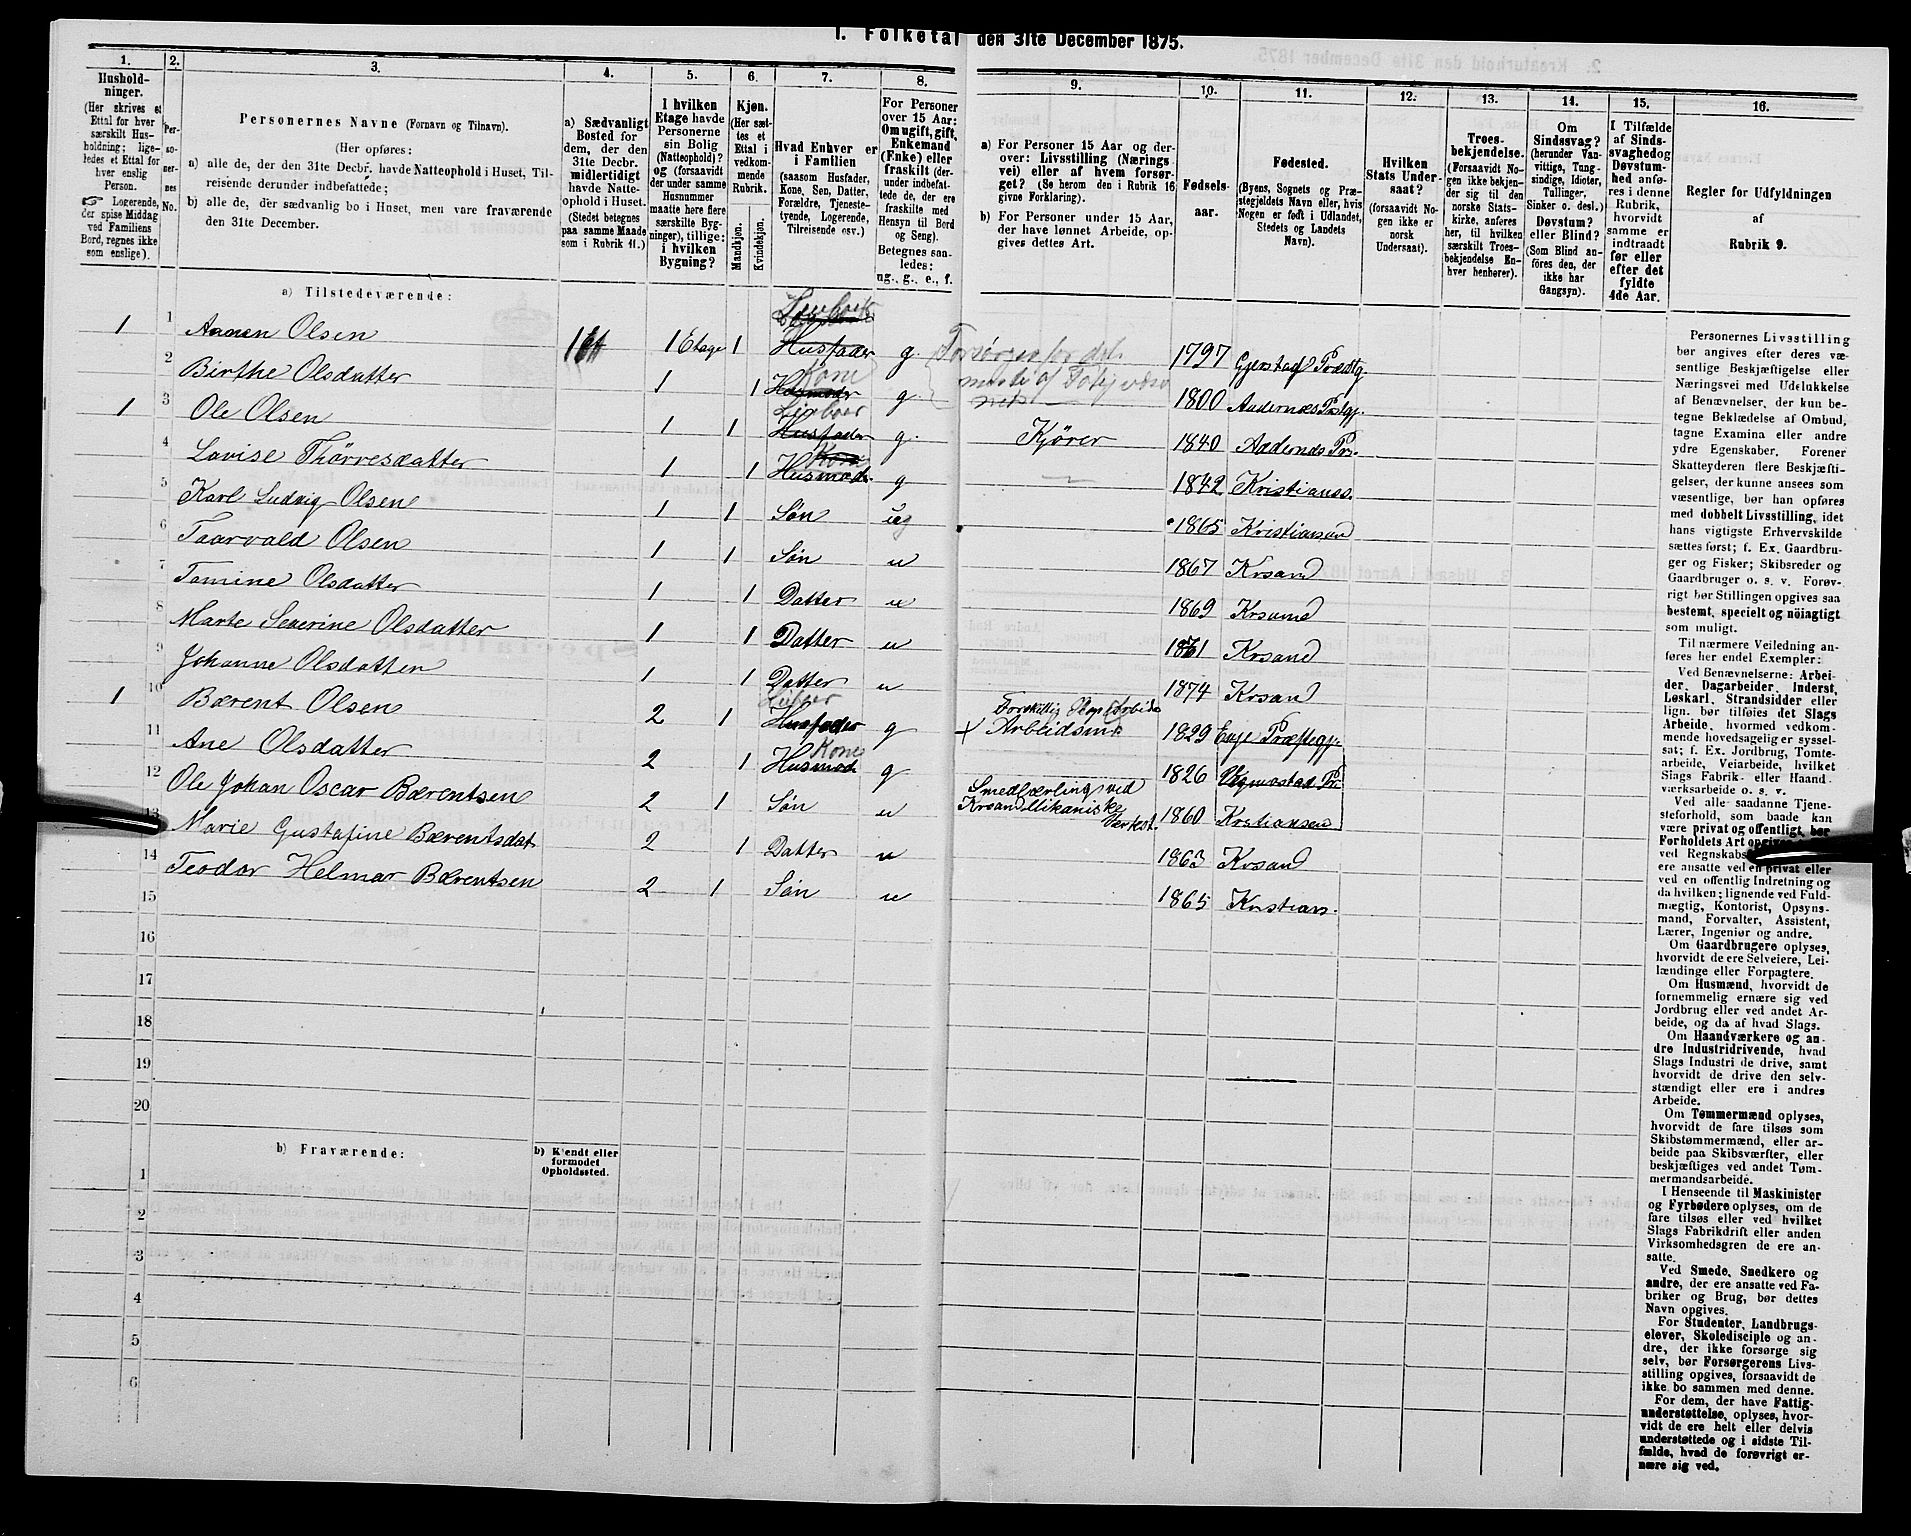 1. Folketal den 31te December 1875.
1. 2. 3. 4. 5. 6. 7. 8. 9. 10. 11. 12. 13. 14. 15. 16.
Hushold-
ninger.
(Her skrives et
Ettal for hver
særskilt Hus-
holdning; lige-
ledes et Ettal for
hver enslig
Person.
Logerende,
der spise Middag
ved Familiens
Bord, regnes ikke
som enslige).
Per-
so-
ner-
nes
No.
Personernes Navne (Fornavn og Tilnavn).
(Her opføres:
a) alle de, der den 31te Decbr. havde Natteophold i Huset, Til-
reisende derunder indbefattede;
b) alle de, der sædvanlig bo i Huset, men vare fraværende
den 31te December.
a) Sædvanligt
Bosted for
dem, der den
31te Decbr.
midlertidigt
havde Natte-
ophold i Huset.
(Stedet betegnes
paa samme Maade
som i Rubrik 11.)
I hvilken
Etage havde
Personerne
sin Bolig
(Natteophold)?
og (forsaavidt
der under samme
Husnummer
maatte være flere
særskilte Byg-
ninger), tillige:
i hvilken
Bygning?
Kjøn.
(Her sæt-
tes et
Ettal i
vedkom-
mende
Rubrik.
Mandkjøn.
Kvindekjøn.
Hvad Enhver er
i Familien
(saasom Husfader,
Kone, Søn, Datter,
Forældre, Tjeneste-
tyende, Logerende,
Tilreisende osv.)
For Personer
over 15 Aar:
Om ugift, gift,
Enkemand
(Enke) eller
fraskilt (der-
under indbefat-
tede de, der ere
fraskilte med
Hensyn til Bord
og Seng).
Betegnes saa-
ledes:
ug., g., e., f.
a) For Personer 15 Aar og der-
over: Livsstilling (Nærings-
vei) eller af hvem forsør-
get? (Se herom den i Rubrik 16
givne Forklaring).
b) For Personer under 15 Aar,
der have lønnet Arbeide, op-
gives dettes Art.
Fødsels-
aar.
Fødested.
(Byens, Sognets og Præ-
stegjeldets Navn eller, hvis
Nogen er født i Udlandet,
Stedets og Landets
Navn).
Hvilken
Stats Under-
saat?
(forsaavidt No-
gen ikke er
norsk
Undersaat).
Troes-
bekjendelse.
(Forsaavidt No-
gen ikke bekjen-
der sig til den
norske Stats-
kirke, anføres
her, til hvilken
særskilt Troes-
bekjendelse En-
hver henhører).
Om
Sindssvag?
(herunder Van-
vittige, Tung-
sindige, Idioter,
Tullinger,
Sinker o. desl.)
Døvstum?
eller Blind?
(Som Blind an-
føres den, der
ikke har
Gangsyn).
I Tilfælde
af Sinds-
svaghed og
Døvstum-
hed anfø-
res i denne
Rubrik,
hvorvidt
samme er
indtraadt
før eller
efter det
fyldte
4de Aar.
Regler for Udfyldningen
af
Rubrik 9.
a) Tilstedeværende:
1 1 Olsen 1 Etage 1 Husfader g. 1797
2 Birthe Olsdatter 1 1 Kone Husmoder g 1800
1 3 Ole Olsen 1 1 Husfader g. Kjører 1840
4 Lovise Thørresdatter 1 1 Kone Husmod. g — 1842 Kristianss.
5 Karl Ludvig Olsen 1 1 Søn ug 1865 Kristiansan
6 Taarvald Olsen 1 1 Søn u 1867 Krsand
7 Tomine Olsdatter 1 1 Datter u 1869 Krsand
8 Marte Severine Olsdatter 1 1 Datter u Krsand
9 Johanne Olsdatter 1 1 Datter u 1874 Krsand
1 10 Bærent Olsen 2 1 Husfader g + Arbeidsm 1829
11 Ane Olsdatter 2 1 Kone Husmod g 1826
12 Ole Johan Oscar Bærentsen 2 1 Søn u Smedlærling ved Krsand Mikaniske Værkst. 1860 Krstiansen
13 Marie Gustafine Bærentsdat 2 1 Datter u 1863 Krsand
14 Teodor Helmar Bærentsen 2 1 Søn u 1865 Krstians.
15
16
17
18
19
20
b) Fraværende:
b) Kjendt eller
formodet
Opholdssted.
1
2
3
4
5
6
Personernes Livsstilling
bør angives efter deres væ-
sentlige Beskjæftigelse eller
Næringsvei med Udelukkelse
af Benævnelser, der kun be-
tegne Beklædelse af Ombud,
tagne Examina eller andre
ydre Egenskaber. Forener
Skatteyderen flere Beskjæfti-
gelser, der kunne ansees som
væsentlige, bør han opføres
med dobbelt Livsstilling, idet
hans vigtigste Erhvervskilde
sættes først; f. Ex. Gaardbru-
ger og Fisker; Skibsreder og
Gaardbruger o. s. v. Forøv-
rigt bør Stillingen opgives saa
bestemt, specielt og nöiagtigt
som muligt.
Til nærmere Veiledning an-
føres her endel Exempler:
Ved Benævnelserne: Arbei-
der, Dagarbeider, Inderst,
Løskarl, Strandsidder eller
lign. bør tilføies det Slags
Arbeide, hvormed vedkom-
mende hovedsagelig er syssel-
sat; f. Ex. Jordbrug, Tomte-
arbeide, Veiarbeide, hvilket
Slags Fabrik- eller Haand-
værksarbeide o. s. v.
Ved alle saadanne Tjene-
steforhold, som baade kan
være privat og offentligt, bør
Forholdets Art opgives
ved Regnskabs
ere ansatte ved en privat eller
ved en offentlig Indretning og
da hvilken; lignende ved Fuld-
mægtig, Kontorist, Opsyns-
mand, Forvalter, Assistent,
Lærer, Ingeniør og andre.
Om Gaardbrugere oplyses,
hvorvidt de ere Selveiere, Lei-
lændinge eller Forpagtere.
Om Husmænd, hvorvidt de
fornemmelig ernære sig ved
Jordbrug eller ved andet Ar-
beide, og da af hvad Slags.
Om Haandværkere og an-
dre Industridrivende, hvad
Slags Industri de drive, samt
hvorvidt de drive den selv-
stændigt eller ere i andres
Arbeide.
Om Tømmermænd oplyses,
hvorvidt de fare tilsøs som
Skibstømmermænd, eller ar-
beide paa Skibsværfter, eller
beskjæftiges ved andet Tøm-
mermandsarbeide.
I Henseende til Maskinister
og Fyrbødere oplyses, om de
fare tilsøs eller ved hvilket
Slags Fabrikdrift eller anden
Virksomhedsgren de ere an-
satte.
Ved Smede, Snedkere og
andre, der ere ansatte ved Fa-
briker og Brug, bør dettes
Navn opgives.
For Studenter, Landbrugs-
elever, Skoledisciple og an-
dre, der ikke forsørge sig
selv, bør Forsørgerens Livs-
stilling opgives, forsaavidt de
ikke bo sammen med denne.
For dem, der have Fattig-
understøttelse, oplyses, hvor-
vidt de ere helt eller delvis
understøttede og i sidste Til-
fælde, hvad de forøvrigt er-
nære sig ved.